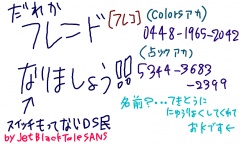 だれか
フレンド[フレコ]
なりましょう!!
↑
スイッチもってないDS民
by JetBlackTaleSANS
(Colorsアカ)
0448-1965-2042
(うごメアカ)
5344-3683
-2399
名前?...てきとうに
にゅうりょくしてくれて
おKです←